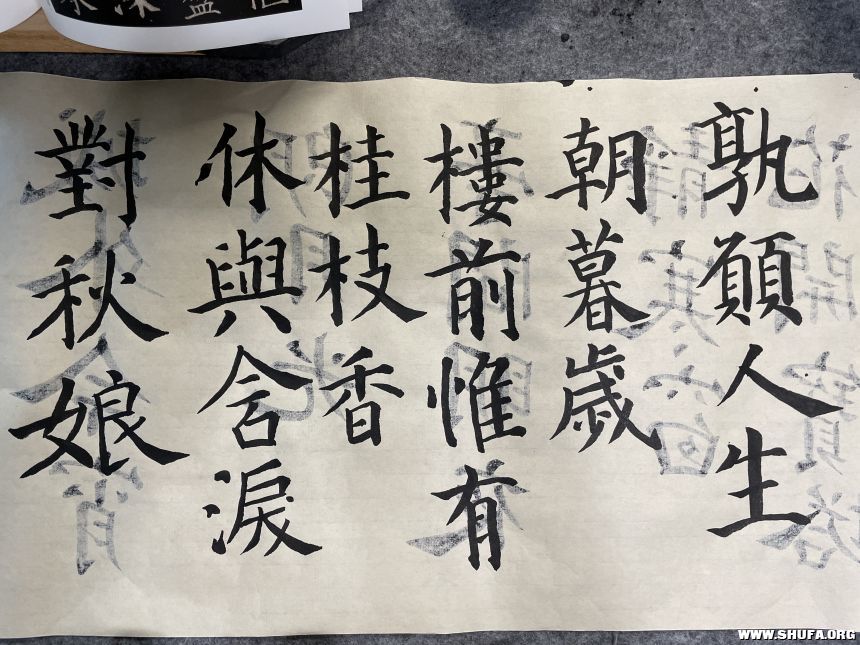 孰願人生
朝暮歲
樓前惟有
桂枝香
休與含淚
對秋娘
WWW.SHUFA.ORG